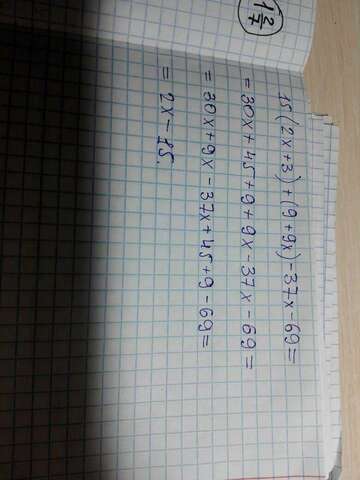 1 2/7
15(2x+3)+(9+9x)-37x-69=
=30x+45+9+9x-37x-69=
=30x+9x-37x+45+9-69=
=2x-15.